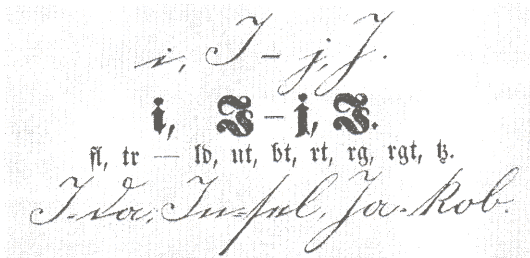 i, I – j, J.
i, I – j, J.
fl, tr — ld, nt, bt, rt, rg, rgt, tz.
I-da, In-sel, Ja-kob.